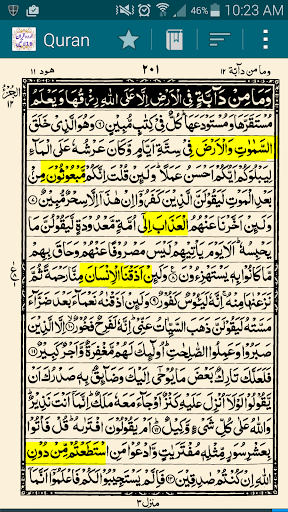 Quran
10:23 AM
49%
وما من دآبة ١٢
٢٠١
هود ١١
الجزء ١٢
وَمَا مِنْ دَآبَّةٍ فِي الْاَرْضِ اِلَّا عَلَى اللّٰهِ رِزْقُهَا وَيَعْلَمُ
مُسْتَقَرَّهَا وَمُسْتَوْدَعَهَا ؕ كُلٌّ فِيْ كِتٰبٍ مُّبِيْنٍ ﴿۶﴾ وَهُوَ الَّذِيْ خَلَقَ
السَّمٰوٰتِ وَالْاَرْضَ فِيْ سِتَّةِ اَيَّامٍ وَّكَانَ عَرْشُهٗ عَلَى الْمَآءِ
لِيَبْلُوَكُمْ اَيُّكُمْ اَحْسَنُ عَمَلًا ؕ وَلَئِنْ قُلْتَ اِنَّكُمْ مَّبْعُوْثُوْنَ مِنْۢ
بَعْدِ الْمَوْتِ لَيَقُوْلَنَّ الَّذِيْنَ كَفَرُوْٓا اِنْ هٰذَآ اِلَّا سِحْرٌ مُّبِيْنٌ ﴿۷﴾
وَلَئِنْ اَخَّرْنَا عَنْهُمُ الْعَذَابَ اِلٰٓى اُمَّةٍ مَّعْدُوْدَةٍ لَّيَقُوْلُنَّ مَا
يَحْبِسُهٗ ؕ اَلَا يَوْمَ يَاْتِيْهِمْ لَيْسَ مَصْرُوْفًا عَنْهُمْ وَحَاقَ بِهِمْ
مَّا كَانُوْا بِهٖ يَسْتَهْزِءُوْنَ ﴿۸﴾ وَلَئِنْ اَذَقْنَا الْاِنْسَانَ مِنَّا رَحْمَةً ثُمَّ
نَزَعْنٰهَا مِنْهُ ۚ اِنَّهٗ لَيَئُوْسٌ كَفُوْرٌ ﴿۹﴾ وَلَئِنْ اَذَقْنٰهُ نَعْمَآءَ بَعْدَ ضَرَّآءَ
مَسَّتْهُ لَيَقُوْلَنَّ ذَهَبَ السَّيِّاٰتُ عَنِّيْ ؕ اِنَّهٗ لَفَرِحٌ فَخُوْرٌ ﴿۱۰﴾ اِلَّا الَّذِيْنَ
صَبَرُوْا وَعَمِلُوا الصّٰلِحٰتِ ؕ اُولٰٓئِكَ لَهُمْ مَّغْفِرَةٌ وَّاَجْرٌ كَبِيْرٌ ﴿۱۱﴾
فَلَعَلَّكَ تَارِكٌۢ بَعْضَ مَا يُوْحٰٓى اِلَيْكَ وَضَآئِقٌۢ بِهٖ صَدْرُكَ اَنْ
يَّقُوْلُوْا لَوْلَآ اُنْزِلَ عَلَيْهِ كَنْزٌ اَوْ جَآءَ مَعَهٗ مَلَكٌ ؕ اِنَّمَآ اَنْتَ نَذِيْرٌ ؕ وَ
اللّٰهُ عَلٰى كُلِّ شَيْءٍ وَّكِيْلٌ ﴿۱۲﴾ اَمْ يَقُوْلُوْنَ افْتَرٰىهُ ؕ قُلْ فَاْتُوْا
بِعَشْرِ سُوَرٍ مِّثْلِهٖ مُفْتَرَيٰتٍ وَّادْعُوْا مَنِ اسْتَطَعْتُمْ مِّنْ دُوْنِ
اللّٰهِ اِنْ كُنْتُمْ صٰدِقِيْنَ ﴿۱۳﴾ فَاِلَّمْ يَسْتَجِيْبُوْا لَكُمْ فَاعْلَمُوْٓا اَنَّمَآ
منزل ٣